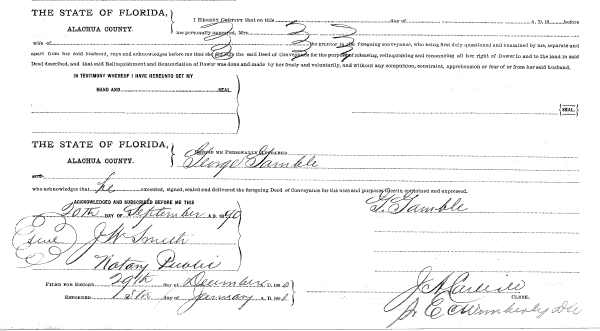 THE STATE OF FLORIDA,
ALACHUA COUNTY.
I HEREBY CERTIFY that on this day of A. D. 18 before
me personally appeared, Mrs.
wife of the grantor in the foregoing conveyance, who being first duly questioned and examined by me, separate and
apart from her said husband, says and acknowledges before me that she the said Deed of Conveyance for the purpose of releasing, relinquishing and renouncing all her right of Dower in and to the land in said
Deed described, and that said Relinquishment and Renunciation of Dower was done and made by her freely and voluntarily, and without any compulsion, constraint, apprehension or fear of or from her said husband.
IN TESTIMONY WHEREOF I HAVE HEREUNTO SET MY
HAND AND SEAL.
SEAL.
THE STATE OF FLORIDA,
ALACHUA COUNTY.
BEFORE ME PERSONALLY APPEARED
George Gamble
AND
who acknowledges that he executed, signed, sealed and delivered the foregoing Deed of Conveyance for the uses and purposes therein contained and expressed.
ACKNOWLEDGED AND SUBSCRIBED BEFORE ME THIS
20th DAY OF September A. D. 1890
G. Gamble
J W Smith
Notary Public
FILED FOR RECORD 29th day of December A. D. 1890
RECORDED day of January A. D. 1891
CLERK.